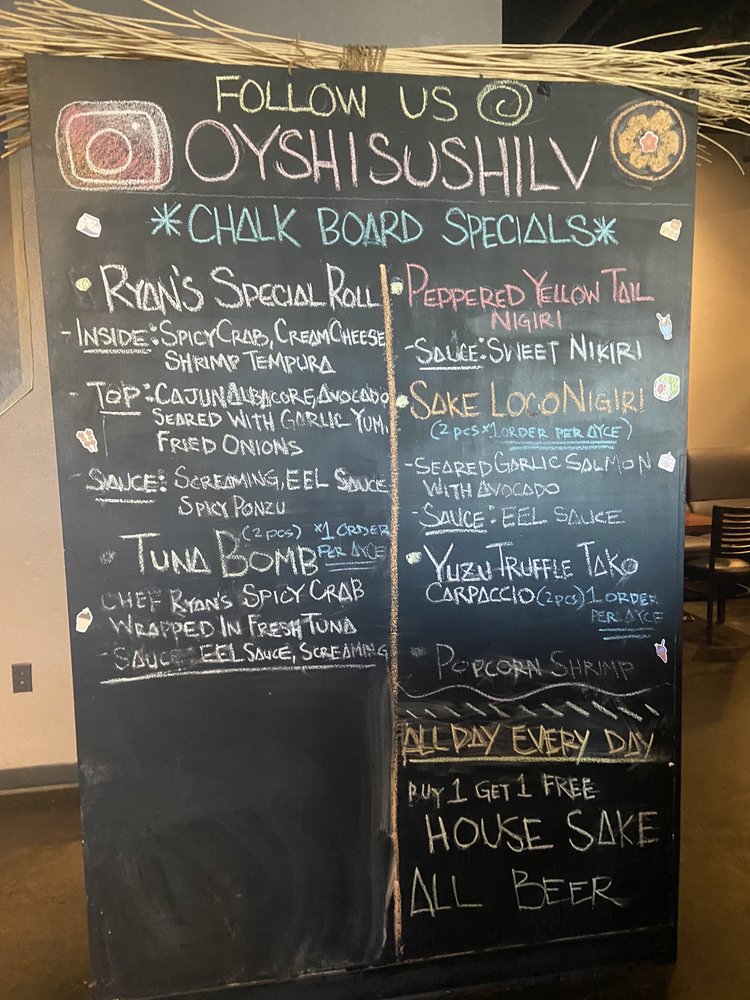 FOLLOW US
OYSHISUSHILV
*CHALK BOARD SPECIALS*
RYAN'S SPECIAL ROLL
- INSIDE: SPICY CRAB, CREAM CHEESE
SHRIMP TEMPURA
- TOP: CAJUN ALBACORE, AVOCADO
SEARED WITH GARLIC YUM,
FRIED ONIONS
- SAUCE: SCREAMING, EEL SAUCE
SPICY PONZU
TUNA BOMB (2 pcs) *1 ORDER
PER AYCE
CHEF RYAN'S SPICY CRAB
WRAPPED IN FRESH TUNA
- SAUCE: EEL SAUCE, SCREAMING
PEPPERED YELLOW TAIL
NIGIRI
- SAUCE: SWEET NIKIRI
SAKE LOCO NIGIRI
(2 pcs *1 ORDER PER AYCE)
- SEARED GARLIC SALMON
WITH AVOCADO
- SAUCE: EEL SAUCE
YUZU TRUFFLE TAKO
CARPACCIO (2 pcs) 1 ORDER
PER AYCE
POPCORN SHRIMP
ALL DAY EVERY DAY
BUY 1 GET 1 FREE
HOUSE SAKE
ALL BEER